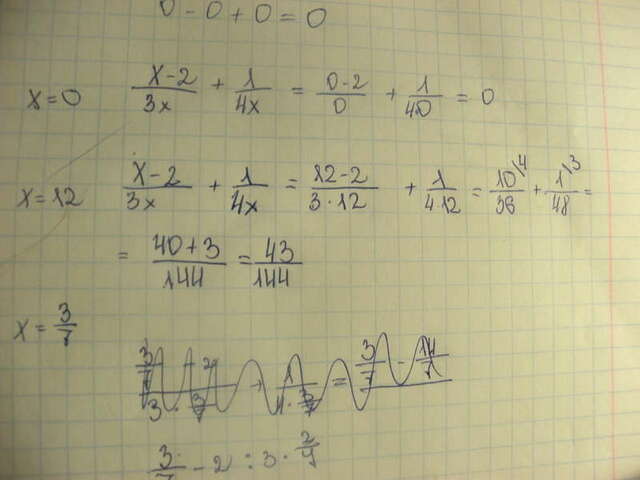 0 - 0 + 0 = 0
x=0 (x-2)/(3x) + 1/(4x) = (0-2)/0 + 1/(4·0) = 0
x=12 (x-2)/(3x) + 1/(4x) = (12-2)/(3·12) + 1/(4·12) = 10\4/36 + 1\3/48 =
= (40+3)/144 = 43/144
x = 3/7